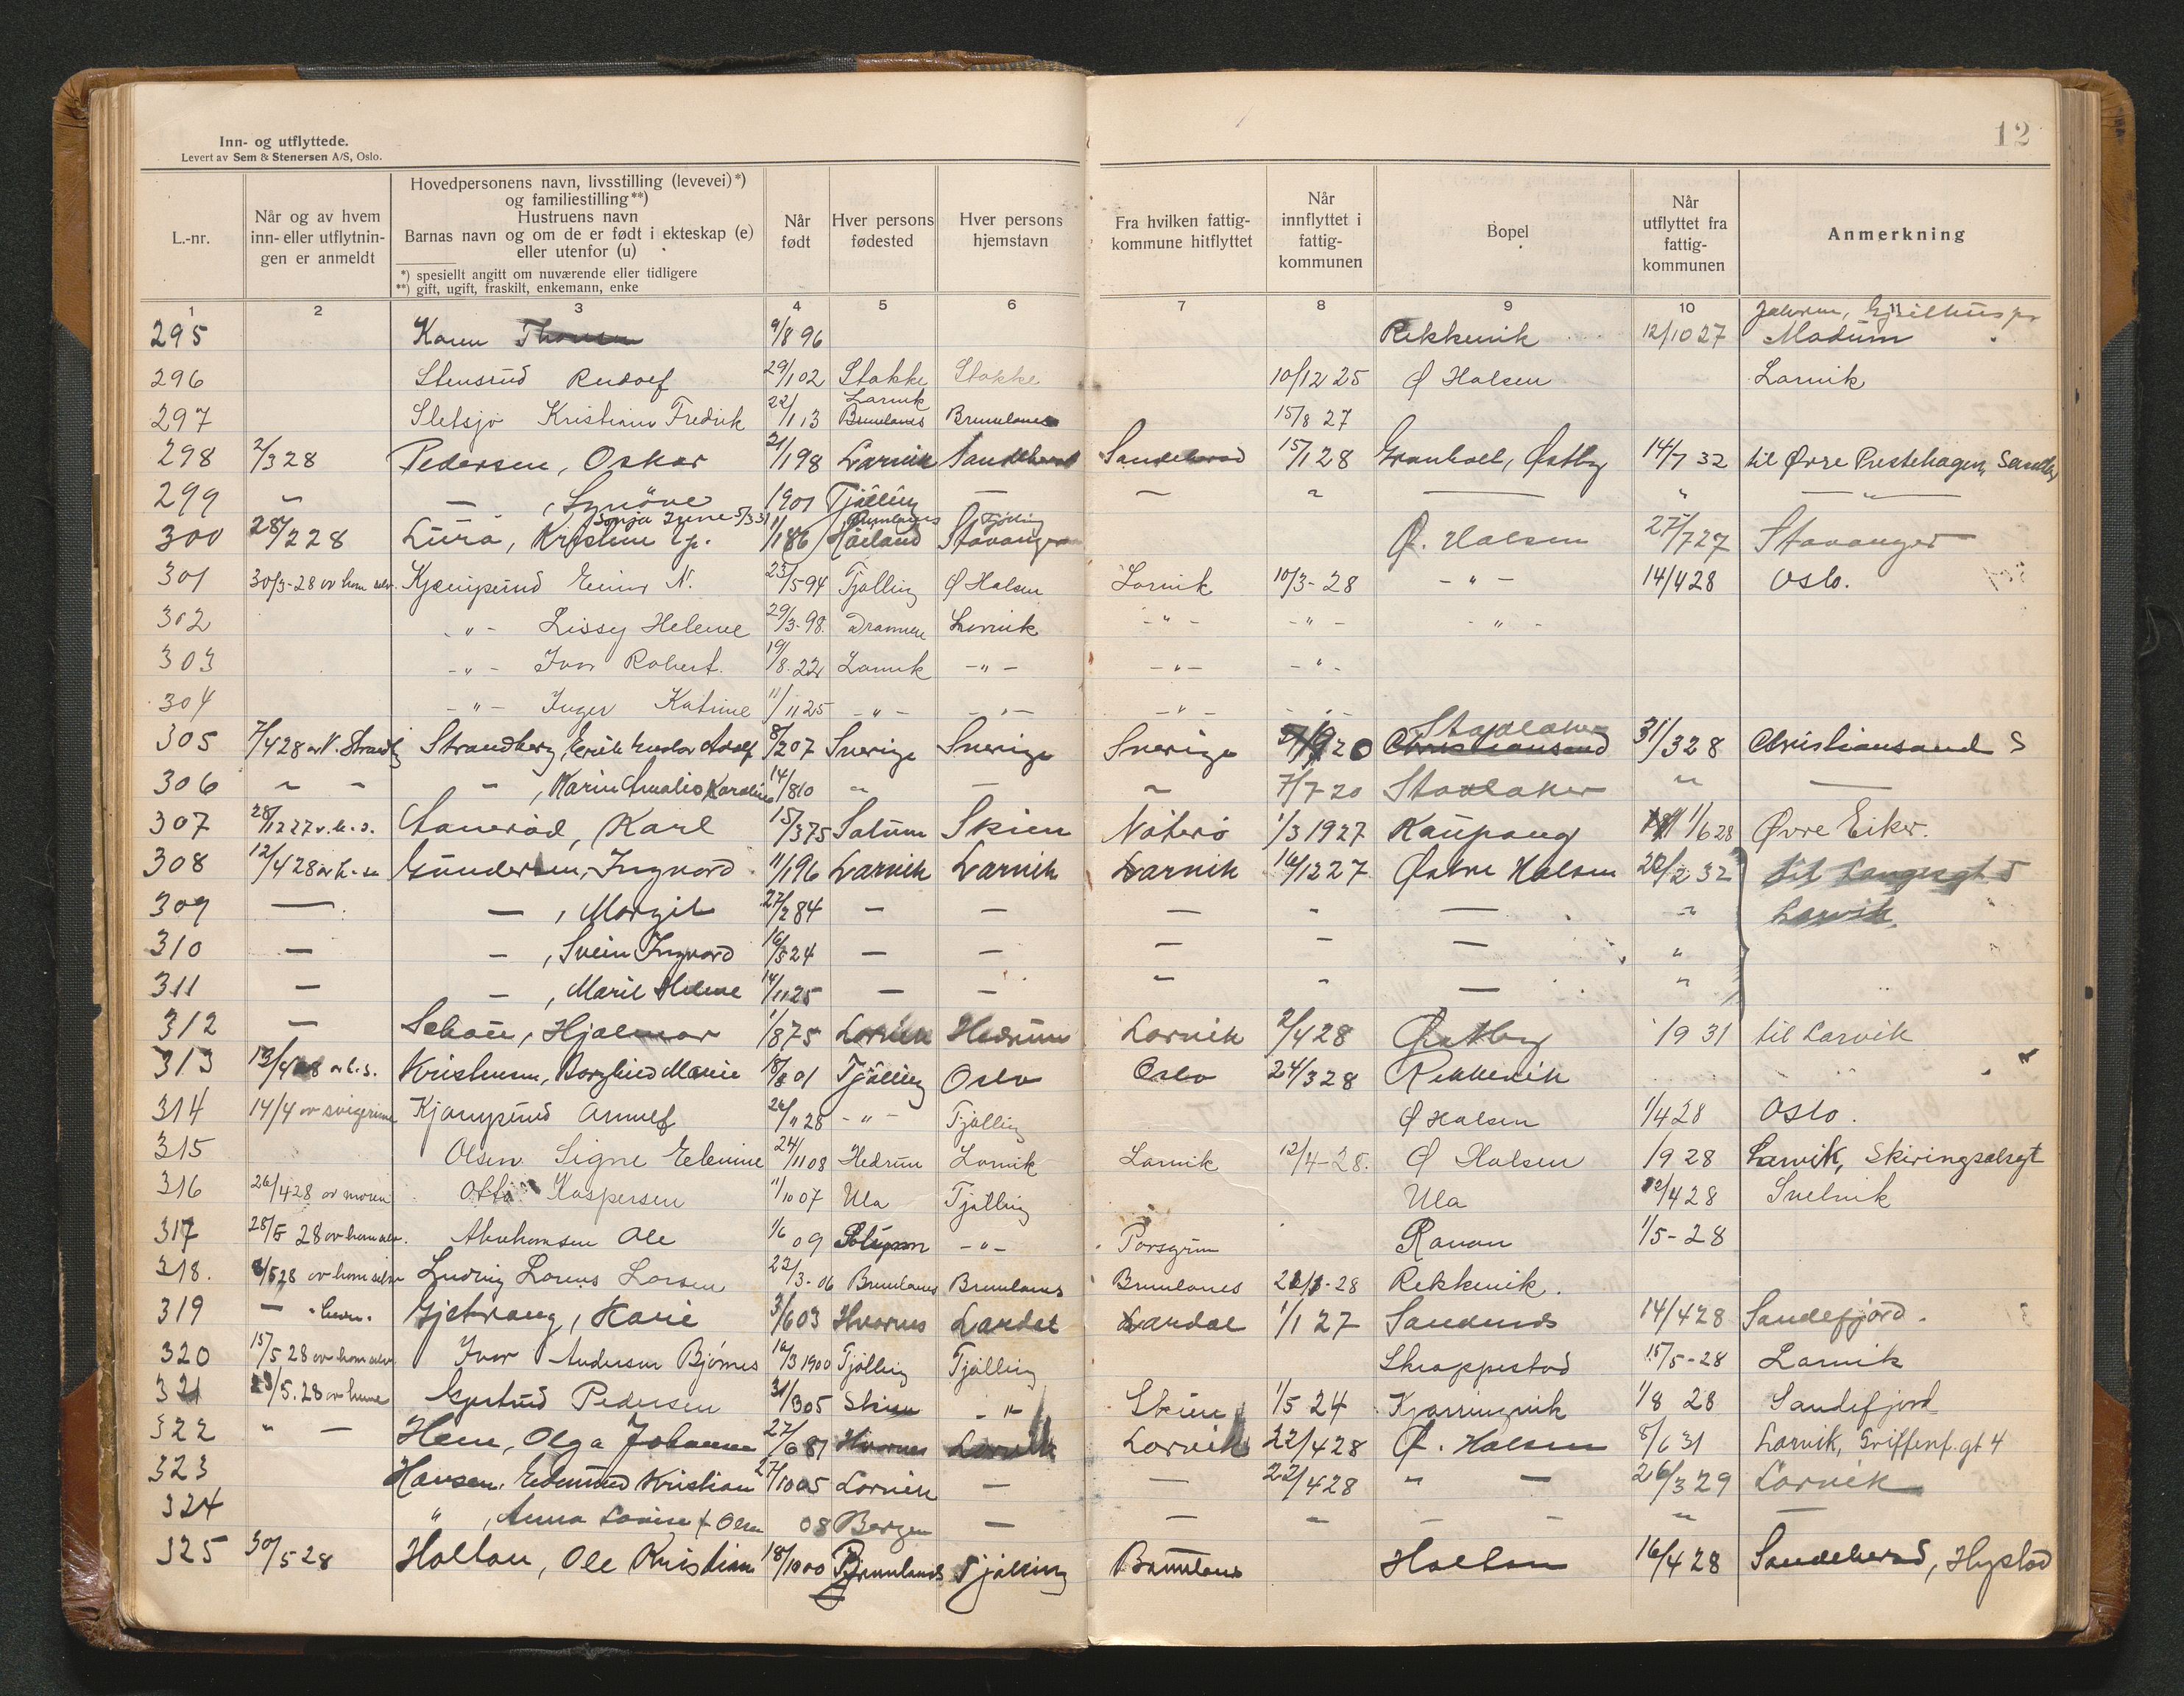 Inn- og utflyttede.
Levert av Sem & Stenersen A/S, Oslo.
12
L.-nr. Når og av hvem inn- eller utflytnin- gen er anmeldt Hovedpersonens navn, livsstilling (levevei)*) og familiestilling**) Hustruens navn Barnas navn og om de er født i ekteskap (e) eller utenfor (u) Når født Hver persons fødested Hver persons hjemstavn Fra hvilken fattig- kommune hitflyttet Når innflyttet i fattig- kommunen Bopel Når utflyttet fra fattig- kommunen Anmerkning
*) spesiellt angitt om nuværende eller tidligere
**) gift, ugift, fraskilt, enkemann, enke
1 2 3 4 5 6 7 8 9 10 11
295 Karen 9/8 96 Rekkevik 12/10 27 Modum
296 Stensrud Rudolf 29/1 02 Stokke Stokke 10/12 25 Ø Halsen Larvik
Larvik
297 Sletsjø Kristian Fredrik 22/1 13 Brunlanes Brunlanes 15/8 27
298 2/3 28 Pedersen, Oskar 21/1 98 Larvik Sandeherad Sandeherad 15/1 28 Granholt, Østby 14/7 32 til Øvre Prestehagen,
299 " — , Synöve 1901 Tjölling — — " — " — " —
Sonja Irene 5/3 31 Brunlanes Tjölling
300 28/2 28 Lura, Kristine 1/1 86 Håland Stavanger Ø. Halsen 27/7 27 Stavanger
301 30/3-28 av ham selv. Kjemperud Einar N. 23/5 94 Tjølling Ø Halsen Larvik 10/3-28 - " - 14/4 28 Oslo.
302 - " - Lissy Helene 29/3-98. Drammen Larvik - " - - " - - " -
303 - " - Ivar Robert. 19/8.22 Larvik - " - - " - - " -
304 - " - Inger Katrine 11/11 25 - " - - " - - " - - " -
Stavlaker
305 7/4 28 av V. Strandb Strandberg, Erik Gustav Adolf 8/2 07 Sverige Sverige Sverige 20 Christiansand 31/3 28 Christiansand S
306 " - - , Karin Amalie Karoline 14/8 10 " — " 7/7-20 Stavlaker " —
307 28/12 27 v.h.s. Aanerød, Karl 15/3 75 Solum Skien Nøterö 1/3 1927 Kaupang 1/6 28 Øvre Eiker.
308 12/4 28 av h. se Gundersen, Ingvard 11/1 96 Larvik Larvik Larvik 16/12 27 Østre Halsen 20/2 32 til Langesgt 5
309 — — , Margit 27/2 84 — — — - — " Larvik.
310 — — , Svein Ingvard 16/5 24 — — — - — "
311 — — , Marie Helene 14/11 25 — — — - — "
312 — Schau, Hjalmar 1/8 75 Larvik Hedrum Larvik 2/4 28 Østby 1/9 31 til Larvik
313 13/4 28 av h.s. Kristensen, Borghild Marie 18/8 01 Tjölling Oslo Oslo 24/3 28 Rekkevik
314 14/4 av svigerinne Kjemperud Arnulf 26/11 28 - " - Tjølling Ø Halsen 1/4 28 Oslo.
315 Olsen Signe Elenine 24/11 08 Hedrum Larvik Larvik 12/4-28. Ø Halsen 1/9 28 Larvik, Skiringsalsgt
316 26/4 28 av moren Otto Kaspersen 11/10 07 Ula Tjølling Ula 12/4 28 Svelvik
317 28/5 28 av ham selv. Abrahamsen Ole 1/6 09 - " - Porsgrun Ranan 1/5-28
318. 8/5 28 av ham selv Ludvig Larens Larsen 22/3-06 Brunlanes Brunlanes Brunlanes -28 Rekkevik.
319 — " — Gjetrang, Karie 3/6 03 Hvarnes Lardal Lardal 1/1 27 Sandnes 14/4 28 Sandefjord.
320 15/5 28 av ham selv Ivar Andersen Bjørnes 16/3 1900 Tjølling Tjølling Skreppestad 15/5-28 Larvik
321 23/5.28 av henne Gjertrud Pedersen 31/3 05 Skien - " - Skien 1/5 24 Kjærringvik 1/8 28 Sandefjord
322 " — Hem, Olga Johanne 27/6 81 Hvarnes Larvik Larvik 22/4 28 Ø. Halsen 8/6 31 Larvik, Griffenf.gt 4
323 Hansen, Edmund Kristian 27/10 05 Larvik — — 22/4 28 " — 26/3 29 Larvik
324 " , Anna Lovise f Olsen 08 Bergen — — " - - " —
325 30/5 28 Holtan, Ole Kristian 18/10 00 Brunlanes Tjølling Brunlanes Holtan 16/4 28 Sandeherad, Hystad